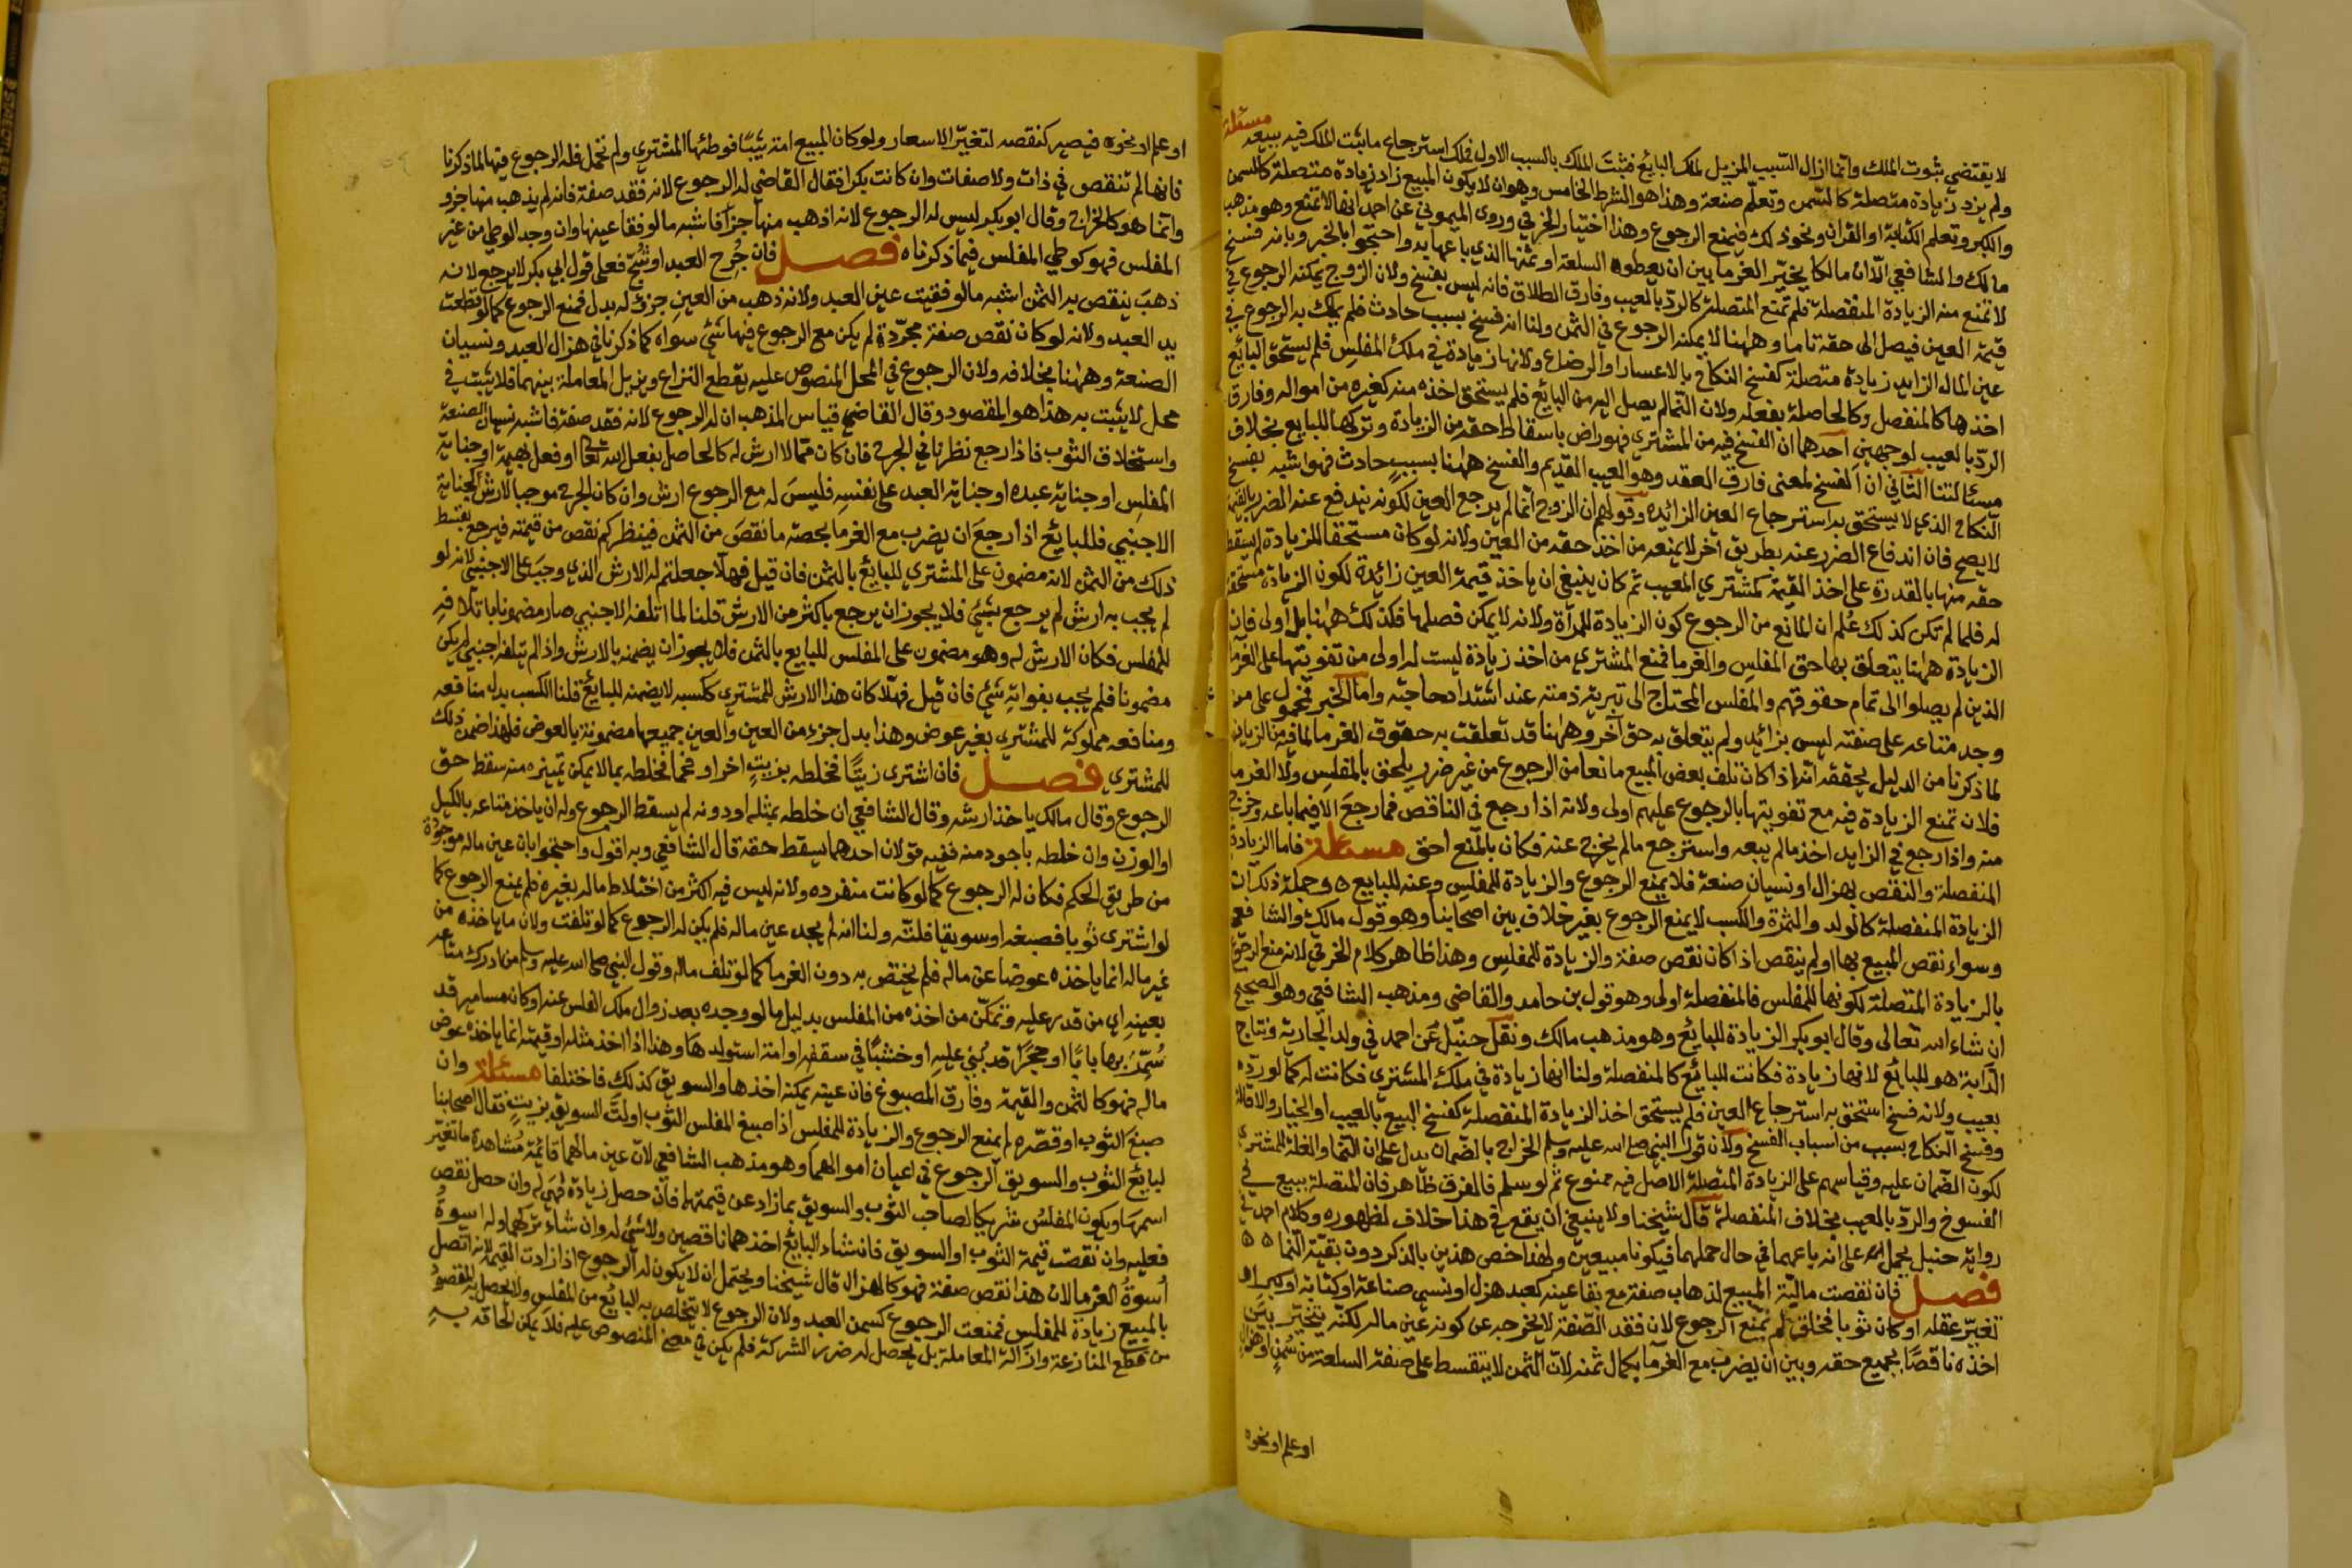 مسئلة
لا يقتضي ثبوت الملك وانما ازال السبب المزيل لملك البائع فثبت الملك بالسبب الاول فملك استرجاع ما يثبت الملك فيه ببيعه
ولم يزد زيادة متصلة كالسمن وتعلم صنعة وهذا هو الشرط الخامس وهو ان لا يكون المبيع زاد زيادة متصلة كالسمن
والكبر وتعلم الكتابة او القران ونحو ذلك فيمنع الرجوع وهذا اختيار الخرقي وروى الميموني عن احمد انها لا تمنع وهو مذهب
مالك والشافعي الا ان مالكا يخير الغرما بين ان يعطوه السلعة او ثمنها الذي باعها به واحتجوا بالخبر وبانه فسخ
لا تمنع منه الزيادة المنفصلة فلم تمنع المتصلة كالرد بالعيب وفارق الطلاق فانه ليس بفسخ ولان الزوج يمكنه الرجوع في
قيمة العين فيصل الى حقه تاما وههنا لا يمكنه الرجوع في الثمن ولنا انه فسخ بسبب حادث فلم يملك به الرجوع في
عين المال الزايد زيادة متصلة كفسخ النكاح بالاعسار او الرضاع ولانها زيادة في ملك المفلس فلم يستحق البائع
اخذها كالمنفصل وكالحاصلة بفعله ولان النما لم يصل اليه من البائع فلم يستحق اخذه منه كغيره من امواله وفارق
الرد بالعيب لوجهين احدهما ان الفسخ فيه من المشتري فهو راض باسقاط حقه من الزيادة وتركها للبايع بخلاف
مسئالتنا الثاني ان الفسخ لمعنى فارق العقد وهو العيب القديم والفسخ ههنا بسبب حادث فهو اشبه بفسخ
النكاح الذي لا يستحق به استرجاع العين الزائده وقولهم ان الزوج انما لم يرجع العين لكونه يندفع عنه الضرر بالقيمة
لا يصح فان اندفاع الضرر عنه بطريق اخر لا يمنعه من اخذ حقه من العين ولانه لو كان مستحقا للزيادة لم يسقط
حقه منها بالمقدرة على اخذ القيمة كمشتري المعيب ثم كان ينبغي ان ياخذ قيمة العين زائدة لكون الزيادة مستحقة
له فلما لم تكن كذلك علم ان المانع من الرجوع كون الزيادة للمرأة ولانه لا يمكن فصلها فكذلك ههنا بل اولى فان
الزيادة ههنا يتعلق بها حق المفلس والغرما فمنع المشتري من اخذ زيادة ليست له اولى من تفويتها على الغرما
الذين لم يصلوا الى تمام حقوقهم والمفلس المحتاج الى تبرية ذمته عند اشتداد حاجته واما الخبر فمحمول على من
وجد متاعه على صفته ليس بزائد ولم يتعلق به حق اخر وههنا قد تعلقت به حقوق الغرما لما فيه من الزيادة
لما ذكرنا من الدليل يحققه انه اذا كان تلف بعض المبيع مانعا من الرجوع من غير ضرر يلحق بالمفلس ولا الغرما
فلان تمنع الزيادة فيه مع تفويتها بالرجوع عليهم اولى ولانه اذا رجع في الناقص فما رجع الا فيما باعه وخرج
منه واذا رجع في الزايد اخذ ما لم يبعه واسترجع ما لم يخرج عنه فكان بالمنع احق مسئلة فاما الزيادة
المنفصلة والنقص بهزال او نسيان صنعة فلا يمنع الرجوع والزيادة للمفلس وعنه للبايع وجملة ذلك ان
الزيادة المنفصلة كالولد والثمرة والكسب لا يمنع الرجوع بغير خلاف بين اصحابنا وهو قول مالك والشافعي
وسواء نقص المبيع بها او لم ينقص اذا كان نقص صفة والزيادة للمفلس وهذا ظاهر كلام الخرقي لانه منع الرجوع
بالزيادة المتصلة لكونها للمفلس فالمنفصلة اولى وهو قول بن حامد والقاضي ومذهب الشافعي وهو الصحيح
ان شاء الله تعالى وقال ابو بكر الزيادة للبائع وهو مذهب مالك ونقل حنبل عن احمد في ولد الجارية ونتاج
الدابة هو للبائع لانها زيادة فكانت للبائع كالمنفصلة ولنا انها زيادة في ملك المشتري فكانت له كما لو رده
بعيب ولانه فسخ استحق به استرجاع العين فلم يستحق اخذ الزيادة المنفصلة كفسخ البيع بالعيب او الخيار والاقالة
وفسخ النكاح بسبب من اسباب الفسخ ولان قول النبي صلى الله عليه وسلم الخراج بالضمان يدل على ان النما والغلة للمشتري
لكون الضمان عليه وقياسهم على الزيادة المتصلة الاصل فيه ممنوع ثم لو سلم فالفرق ظاهر فان المتصلة يبيع في
الفسوخ والرد بالعيب بخلاف المنفصلة قال شيخنا ولا ينبغي ان يقع في هذا خلاف لظهوره وكلام احمد في
رواية حنبل يحمل على انه باعهما في حال حملهما فيكونا مبيعين ولهذا خص هذين بالذكر دون بقية النما
فصل فان نقصت مالية المبيع لذهاب صفة مع بقا عينه كعبد هزل او نسي صناعة او كتابة او كبر او
تغير عقله او كان ثوبا فخلق لم يمنع الرجوع لان فقد الصفة لا يخرجه عن كونه عين ماله لكنه يتخير بين
اخذه ناقصا بجميع حقه وبين ان يضرب مع الغرما بكمال ثمنه لان الثمن لا يتقسط على صفة السلعة من سمن او هزال
او علم او نحوه
او علم او نحوه فيصير كنقصه لتغير الاسعار ولو كان المبيع امة ثيبا فوطئها المشتري ولم تحمل فله الرجوع فيها لما ذكرنا
فانها لم تنقص في ذات ولا صفات وان كانت بكرا فقال القاضي له الرجوع لانه فقد صفة فانه لم يذهب منها جزو
وانما هو كالخراج وقال ابو بكر ليس له الرجوع لانه اذهب منها جزا فاشبه ما لو فقا عينها وان وجد الوطي من غير
المفلس فهو كوطي المفلس فيما ذكرناه فصل فان جرح العبد او شج فعلى قول ابي بكر لا يرجع لانه
ذهب ينقص به الثمن اشبه ما لو فقيت عين العبد ولانه ذهب من العين جزؤ له بدل فمنع الرجوع كما لو قطعت
يد العبد ولانه لو كان نقص صفة مجردة لم يكن مع الرجوع فيها شئ سواه كما ذكرنا في هزال العبد ونسيان
الصنعة وههنا بخلافه ولان الرجوع في المحل المنصوص عليه يقطع النزاع ويزيل المعاملة بينهما فلا يثبت في
محل لا يثبت به هذا هو المقصود وقال القاضي قياس المذهب ان له الرجوع لانه فقد صفة فاشبه نسيان الصنعة
واستخلاق الثوب فاذا رجع نظرنا في الجرح فان كان مما لا ارش له كالحاصل بفعل الله تعالى او فعل بهيمة او جناية
المفلس او جناية عبده او جناية العبد على نفسه فليس له مع الرجوع ارش وان كان الجرح موجبا لارش كجناية
الاجنبي فللبائع اذا رجع ان يضرب مع الغرما بحصة ما نقص من الثمن فينظر كم نقص من قيمته فيرجع بقسط
ذلك من الثمن لانه مضمون على المشتري للبائع بالثمن فان قيل فهلا جعلتم له الارش الذي وجب على الاجنبي لانه لو
لم يجب به ارش لم يرجع بشئ فلا يجوز ان يرجع باكثر من الارش قلنا لما اتلفه الاجنبي صار مضمونا باتلافه
للمفلس فكان الارش له وهو مضمون على المفلس للبايع بالثمن فلا يجوز ان يضمنه بالارش واذا لم يتلفه اجنبي لم يكن
مضمونا فلم يجب بفواته شئ فان قيل فهلا كان هذا الارش للمشتري ككسبه لا يضمنه للبائع قلنا الكسب بدل منافعه
ومنافعه مملوكة للمشتري بغير عوض وهذا بدل جزء من العين والعين جميعها مضمونة بالعوض فلهذا ضمن ذلك
للمشتري فصل فان اشترى زيتا فخلطه بزيت اخر او قمحا فخلطه بما لا يمكن تمييزه منه سقط حق
الرجوع وقال مالك ياخذ ارشه وقال الشافعي ان خلطه بمثله او دونه لم يسقط الرجوع وله ان ياخذ متاعه بالكيل
او الوزن وان خلطه باجود منه ففيه قولان احدهما يسقط حقه قال الشافعي وبه اقول واحتجوا بان عين ماله موجودة
من طريق الحكم فكان له الرجوع كما لو كانت منفرده ولانه ليس فيه اكثر من اختلاط ماله بغيره فلم يمنع الرجوع كما
لو اشترى ثوبا فصبغه او سويقا فلته ولنا انه لم يجد عين ماله فلم يكن له الرجوع كما لو تلفت ولان ما ياخذه من
غير ماله انما ياخذه عوضا عن ماله فلم يختص به دون الغرما كما لو تلف ماله وقول النبي صلى الله عليه وسلم من ادرك متاعه
بعينه اي من قدر عليه وتمكن من اخذه من المفلس بدليل ما لو وجده بعد زوال ملك المفلس عنه او كان مسامير قد
سمر بها بابا او حجرا قد بني عليه او خشبا في سقفه او امة استولدها وهذا اذا اخذ مثله او قيمته انما ياخذه عوض
ماله فهو كالثمن والقيمة وفارق المصبوغ فان عينه يمكنه اخذها والسويق كذلك فاختلفا مسئلة وان
صبغ الثوب او قصره لم يمنع الرجوع والزيادة للمفلس اذا صبغ المفلس الثوب او لت السويق بزيت فقال اصحابنا
لبائع الثوب والسويق الرجوع في اعيان اموالهما وهو مذهب الشافعي لان عين مالهما قائمة مشاهدة ما تغير
اسمها ويكون المفلس شريكا لصاحب الثوب والسويق بما زاد عن قيمتهما فان حصل زيادة فهي له وان حصل نقص
فعليه وان نقصت قيمة الثوب او السويق فان شاء البائع اخذهما ناقصين ولا شئ له وان شاء تركهما وله اسوة
اسوة الغرما لان هذا نقص صفة فهو كالهزال قال شيخنا ويحتمل ان لا يكون له الرجوع اذا زادت القيمة لانه اتصل
بالمبيع زيادة للمفلس فمنعت الرجوع كسمن العبد ولان الرجوع لا يتخلص به البائع من المفلس ولا يحصل به المقصود
من قطع المنازعة وازالة المعاملة بل يحصل له ضرر الشركة فلم يكن في معنى المنصوص عليه فلا يمكن الحاقه به